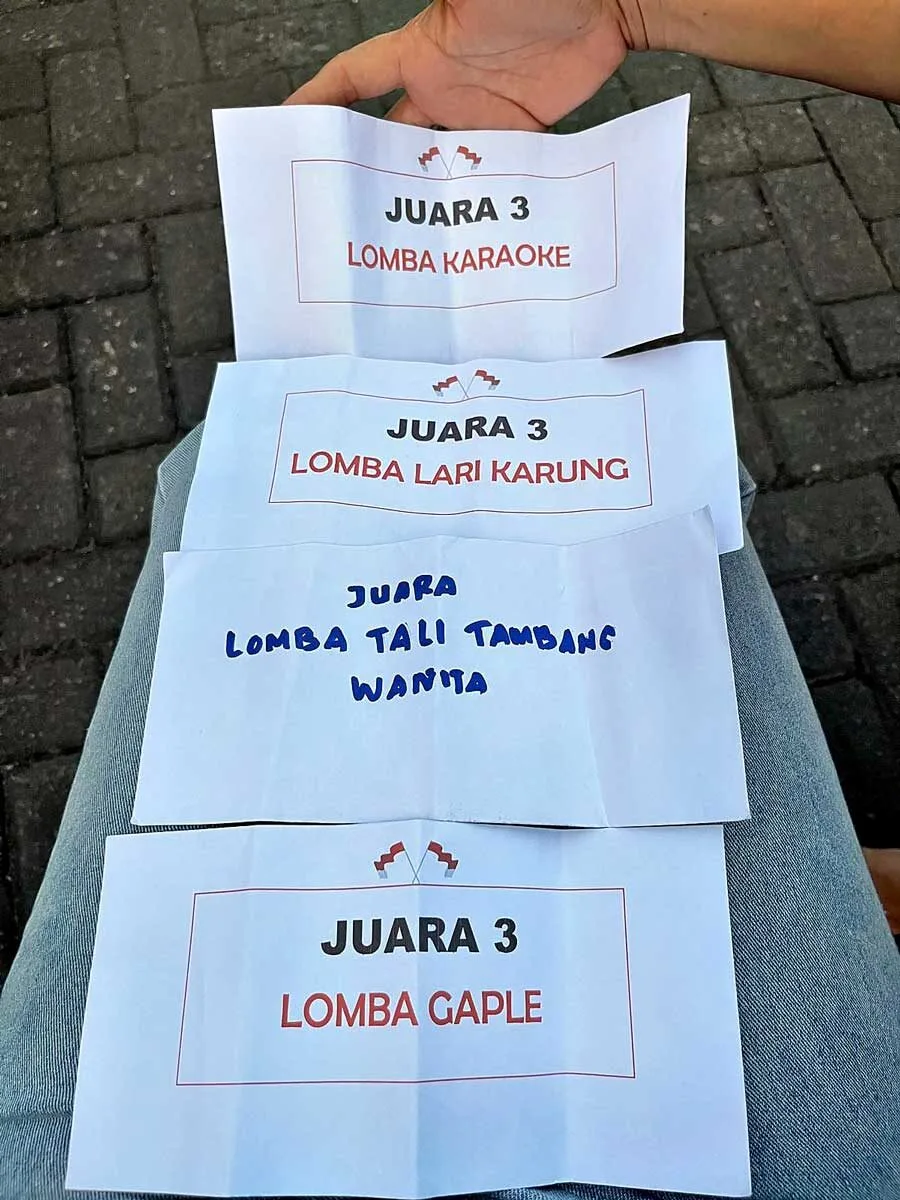 JUARA 3
LOMBA KARAOKE
JUARA 3
LOMBA LARI KARUNG
JUARA
LOMBA TALI TAMBANG
WANITA
JUARA 3
LOMBA GAPLE